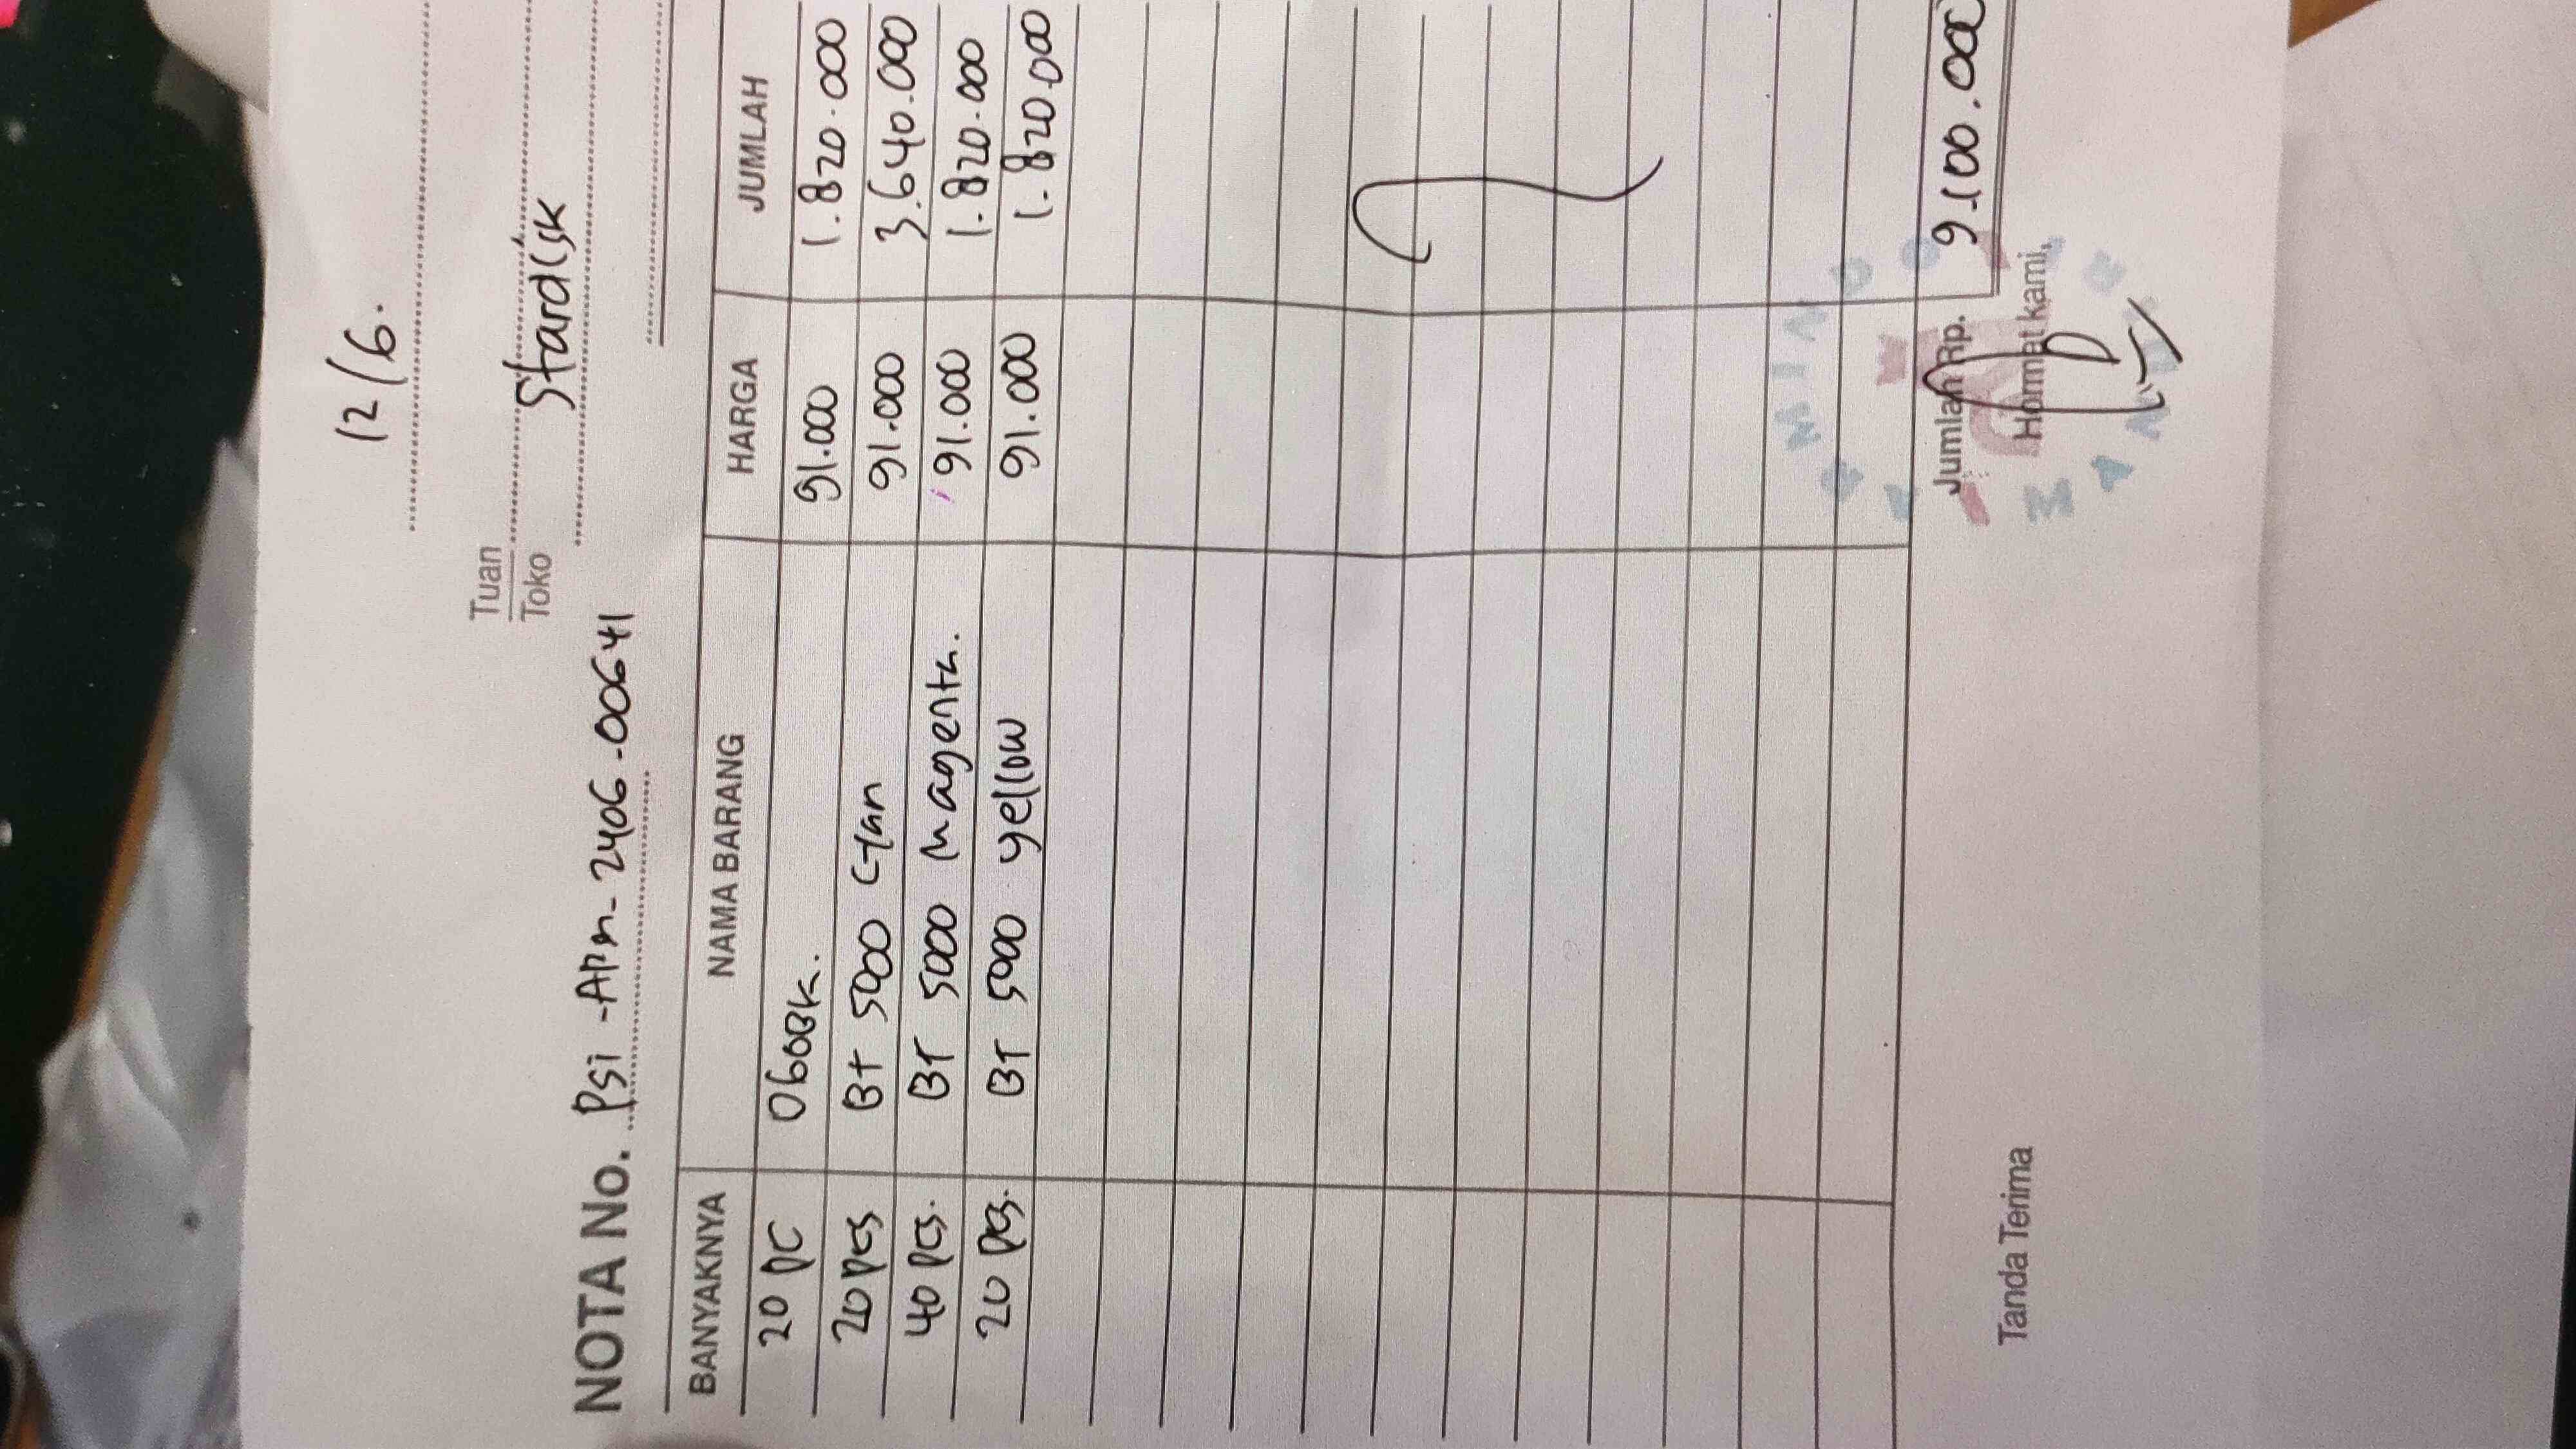 12/6.
Tuan
Toko Stardisk
NOTA No. Psi -APM- 2406 -00641
BANYAKNYA NAMA BARANG HARGA JUMLAH
20 pc 0600BK. 91.000 1.820.000
20 pcs BT 5000 Cyan 91.000 3.640.000
40 pcs. BT 5000 Magenta. 91.000 1.820.000
20 pcs. BT 5000 yellow 91.000 1.820.000
Jumlah Rp. 9.100.000
Tanda Terima Hormat kami,